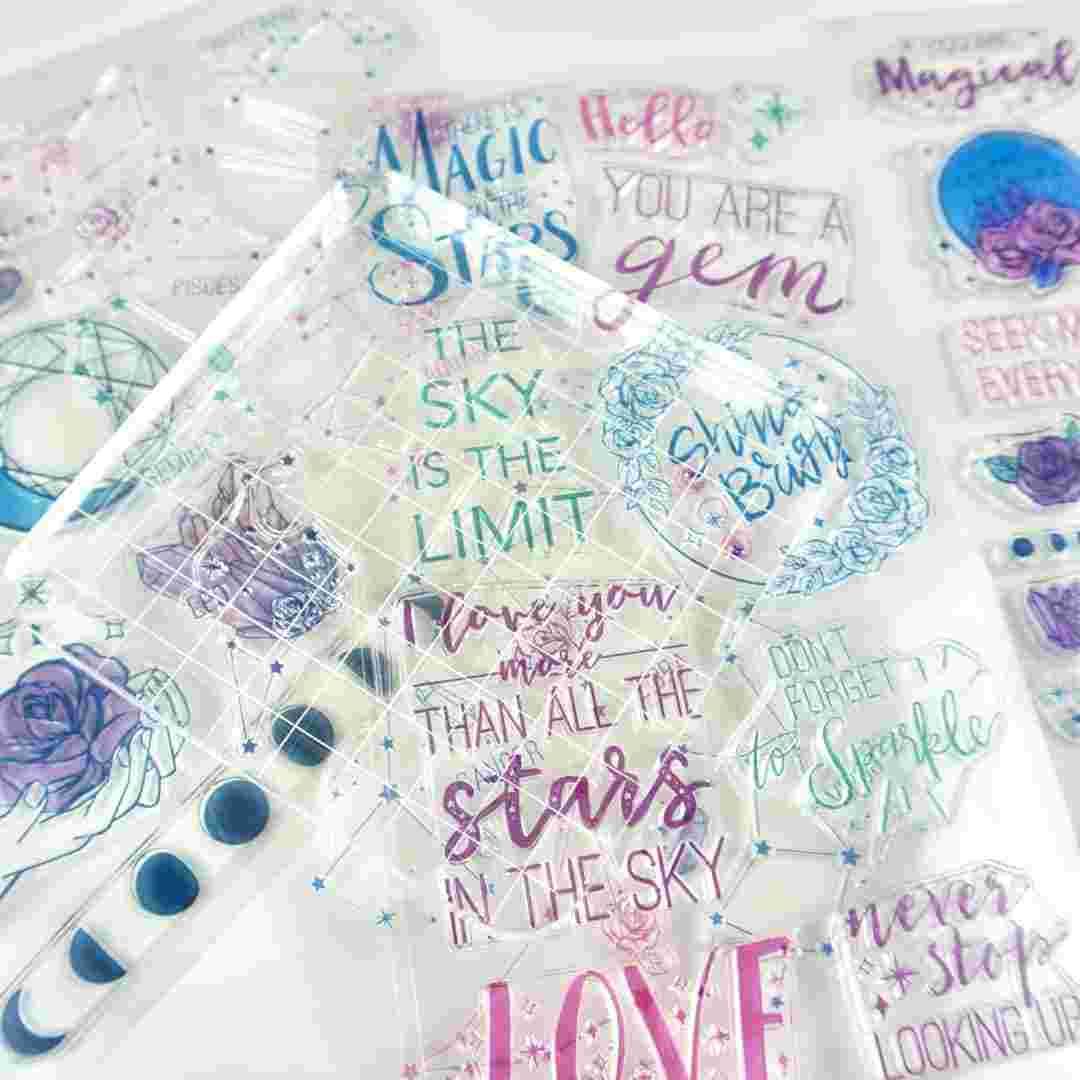 Magical
Hello
MAGIC
IN THE
STARS
YOU ARE A
gem
PISCES
THE
SKY
IS THE
LIMIT
SEEK M
EVERY
Shine
Bright
LEO
I love you
more
THAN ALL THE
CANCER
stars
IN THE SKY
DON'T
FORGET
to Sparkle
LOVE
never
stop
LOOKING UP